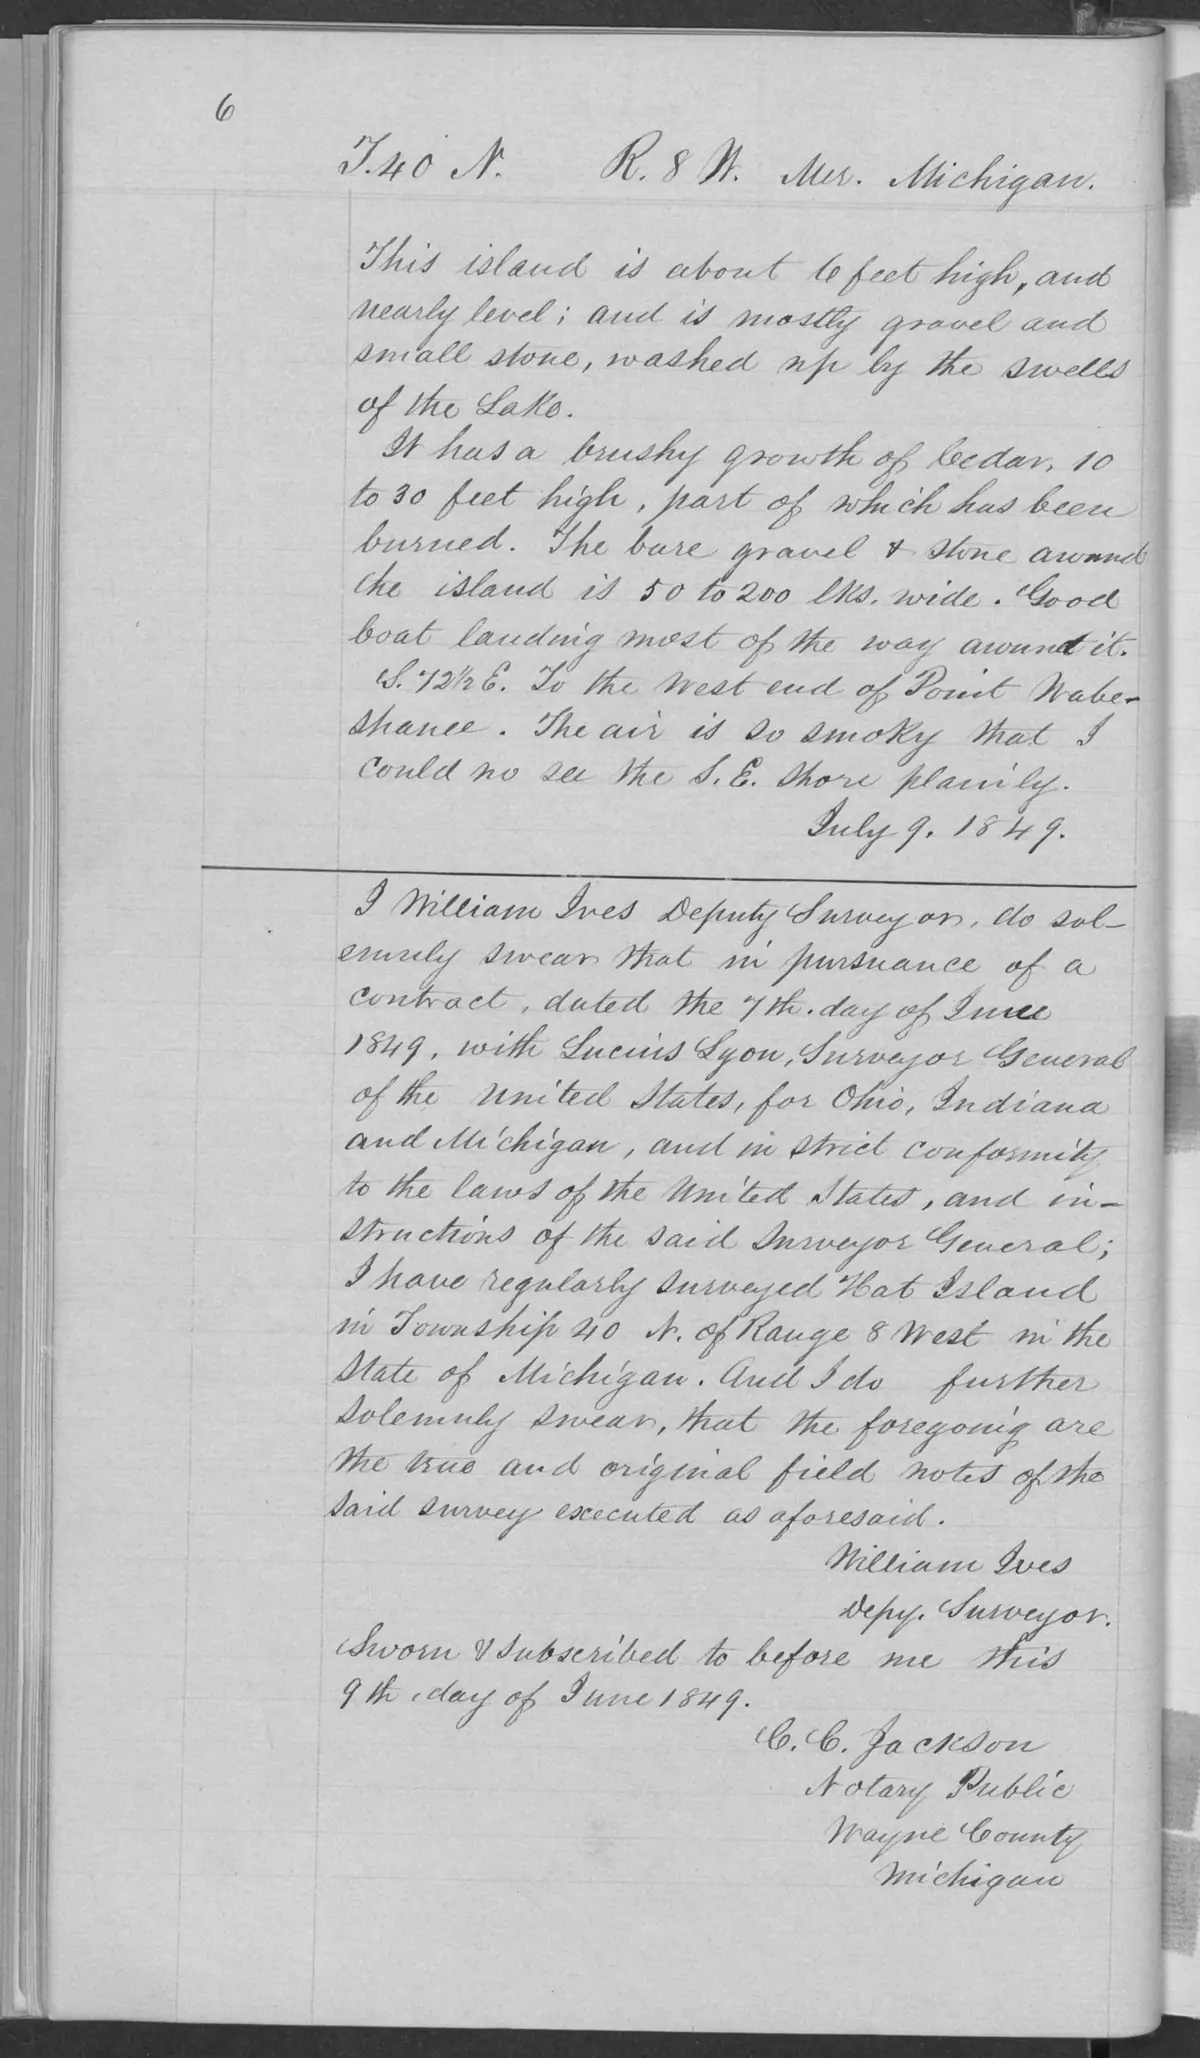 6
T. 40 N. R. 8 W. Mer. Michigan.
This island is about 6 feet high, and
nearly level; and is mostly gravel and
small stone, washed up by the swells
of the Lake.
It has a brushy growth of Cedar, 10
to 30 feet high, part of which has been
burned. The bare gravel & stone around
the island is 50 to 200 lks. wide. Good
boat landing most of the way around it.
S. 72½ E. To the West end of Point Wabe-
shance. The air is so smoky that I
could no see the S. E. shore plainly.
July 9. 1849.
I William Ives Deputy Surveyor, do sol-
emnly swear that in pursuance of a
contract, dated the 7th. day of June
1849, with Lucius Lyon, Surveyor General
of the United States, for Ohio, Indiana
and Michigan, and in strict conformity
to the laws of the United States, and in-
structions of the said Surveyor General;
I have regularly surveyed Hat Island
in Township 40 N. of Range 8 West in the
State of Michigan. And I do further
solemnly swear, that the foregoing are
the true and original field notes of the
said survey executed as aforesaid.
William Ives
Depy. Surveyor.
Sworn & Subscribed to before me this
9th day of June 1849.
C. C. Jackson
Notary Public
Wayne County
Michigan